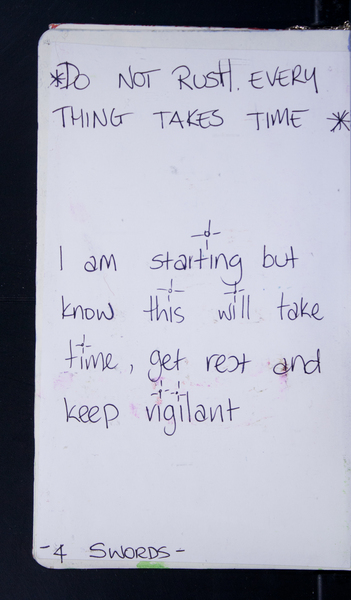 *DO NOT RUSH. EVERY
THING TAKES TIME *
I am starting but
know this will take
time, get rest and
keep vigilant
-4 SWORDS-